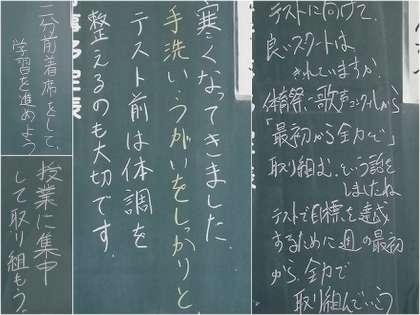 二分前着席をして、
学習を進めよう
授業に集中
して取り組もう。
寒くなってきました。
手洗い、うがいをしっかりと
テスト前は体調を
整えるのも大切です。
テストに向けて、
良いスタートは
きれていますか。
体育祭、歌声コンクールから
「最初から全力で」
取り組む、という話を
しましたね
テストで目標を達成
するために週の最初
から、全力で
取り組んでいこう